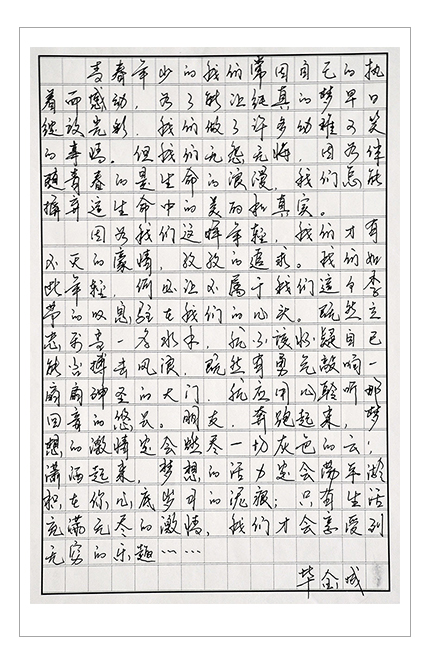 青春年少的我们常因自己的执
着而感动，为了能让纯真的梦早日
绽放光彩，我们做了许多幼稚可笑
的事吗。但我们无怨无悔，因为伴
随青春的是生命的浪漫，我们怎能
摒弃这生命中的美丽和真实。
因为我们这样年轻，我们才有
不灭的豪情，孜孜的追求。我们如
此年轻，何必让不属于我们这个季
节的叹息驻在我们的心头。既然立
志要一名水手，就不该怀疑自己
能否搏击风浪，既然有勇气敲响一
扇扇神圣的大门，就应用心聆听那
回音的悠长。朋友，奔跑起来，梦
想的激情定会燃尽一切灰色的云；
潇洒起来，梦想的活力定会荡平淤
积在你心底岁月的泥痕；只有生活
充满无尽的激情，我们才会享受到
无穷的乐趣……
毕全成